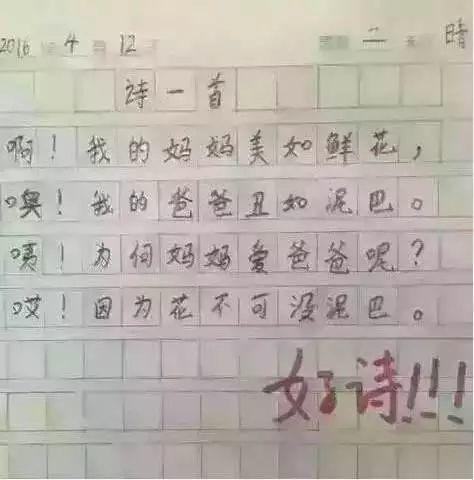 2016年4月12日 星期二 天气 晴
诗一首
啊！我的妈妈美如鲜花，
噢！我的爸爸丑如泥巴。
咦！为何妈妈爱爸爸呢？
哎！因为花不可没泥巴。
好诗!!!